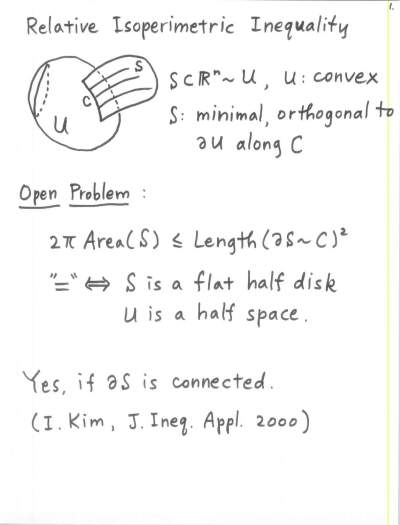 1.
Relative Isoperimetric Inequality
S
C
U
S⊂ℝⁿ~U, U: convex
S: minimal, orthogonal to
∂U along C
Open Problem :
2π Area(S) ≤ Length(∂S~C)²
"=" ⇔ S is a flat half disk
U is a half space.
Yes, if ∂S is connected.
(I. Kim, J. Ineq. Appl. 2000)